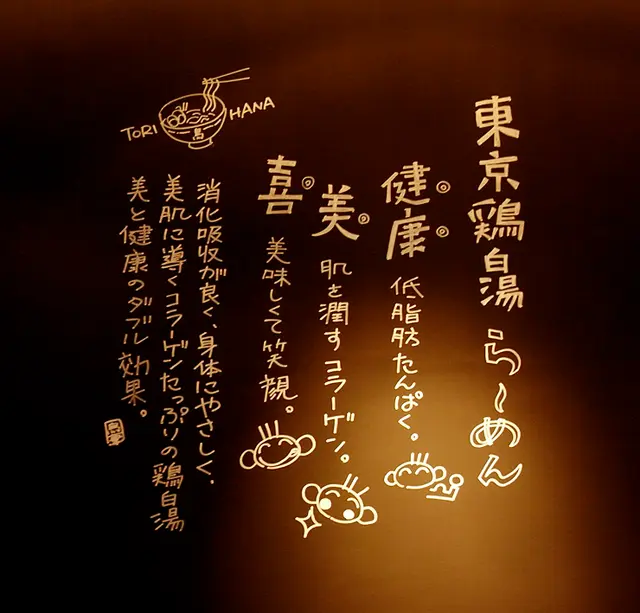 東京鶏白湯らーめん
健康 低脂肪たんぱく。
美 肌を潤すコラーゲン。
喜 美味しくて笑顔。
消化吸収が良く、身体にやさしく、
美肌に導くコラーゲンたっぷりの鶏白湯
美と健康のダブル効果。
TORI HANA